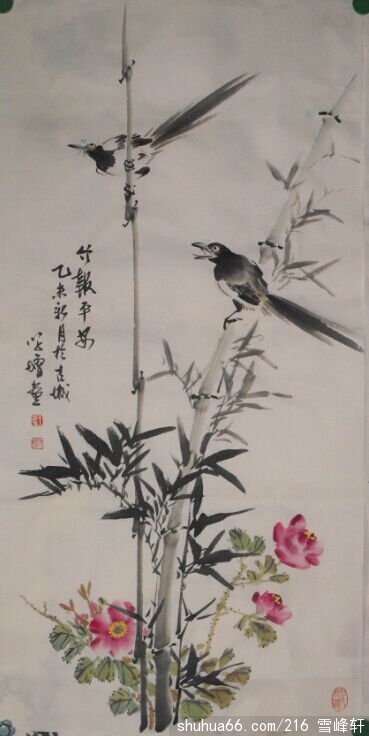 竹報平安
乙未秋月於古城
shuhua66.com/216 雪峰轩